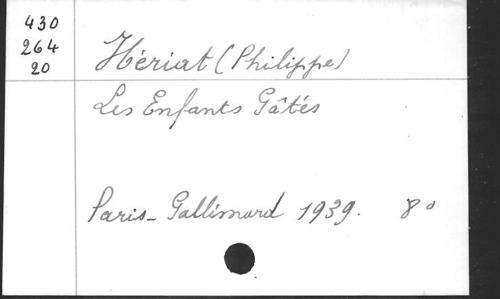 430
264
20
Hériat (Philippe)
Les Enfants Gâtés
Paris_ Gallimard 1939. 8°